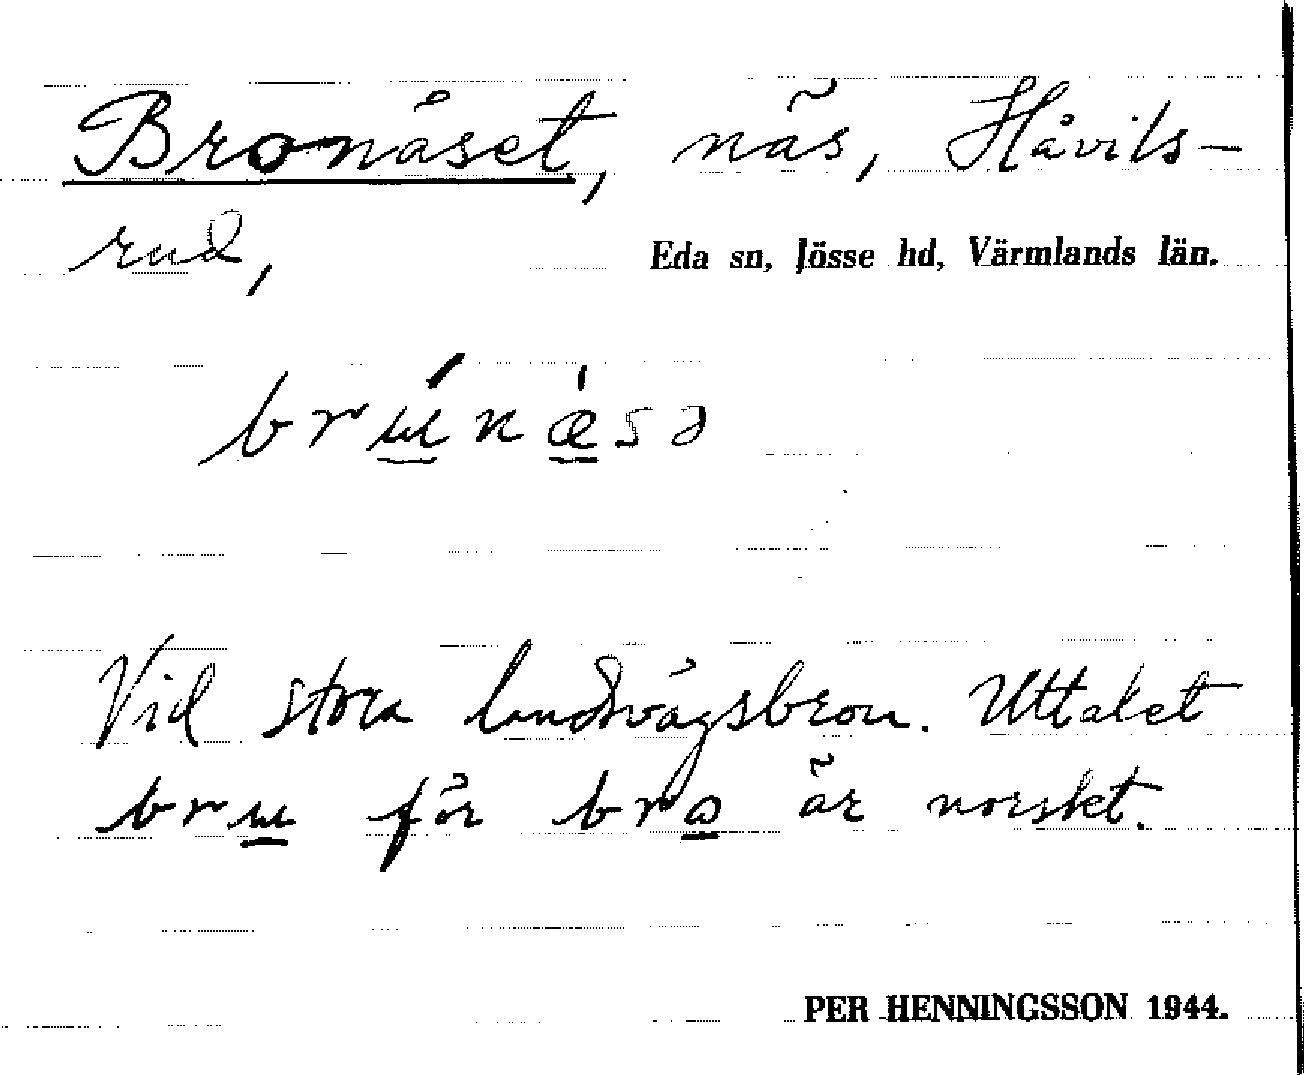 Bronäset, näs, Håvils-
rud, Eda sn, Jösse hd, Värmlands län.
brɯ́nǽsə
Vid stora landsvägsbron. Uttalet
brɯ för bro är norskt.
PER HENNINGSSON 1944.